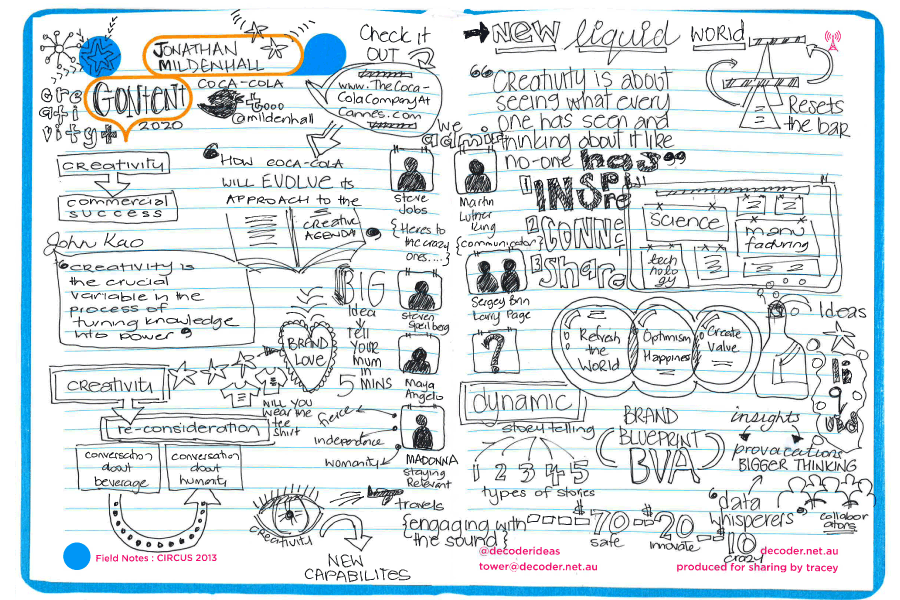 JONATHAN
MILDENHALL
CREATIVITY+
CONTENT
2020
COCA-COLA
@mildenhall
Check it
OUT
www.TheCoca-
ColaCompanyAt
Cannes.com
creativity
commercial
success
John Kao
creativity is
the crucial
variable in the
process of
turning knowledge
into power
HOW COCA-COLA
WILL EVOLVE its
APPROACH to the
CREATIVE
AGENDA
we
admire
Steve
Jobs
{Heres to
the crazy
ones....}
BIG
Idea
TELL
YOUR
MUM
IN
5 MINS
Steven
Speilberg
Maya
Angelo
MADONNA
staying
Relevant
fierce
independence
womanity
BRAND
LOVE
WILL YOU
wear the
tee
shirt
creativity
re-consideration
conversation
about
beverage
conversation
about
humanity
creativity
NEW
CAPABILITES
travels
{engaging with
the sound}
Field Notes : CIRCUS 2013
NEW liquid WORLD
"Creativity is about
seeing what every
one has seen and
thinking about it like
no-one has"
Resets
the bar
Martin
Luther
King
{communicator}
1 INSPIRE
2 CONNE
3 Share
science
manu
facturing
tech
nolo
gy
Sergey Brin
Larry Page
?
Refresh
the
WORLD
Optimism
Happines
Create
Value
Ideas
liquid
dynamic
storytelling
1 2 3 4 5
types of stories
BRAND
BLUEPRINT
BVA
insights
provocation
BIGGER THINKING
data
whisperers
collabor
ators
70
safe
20
innovate
10
crazy
@decoderideas
tower@decoder.net.au
decoder.net.au
produced for sharing by tracey